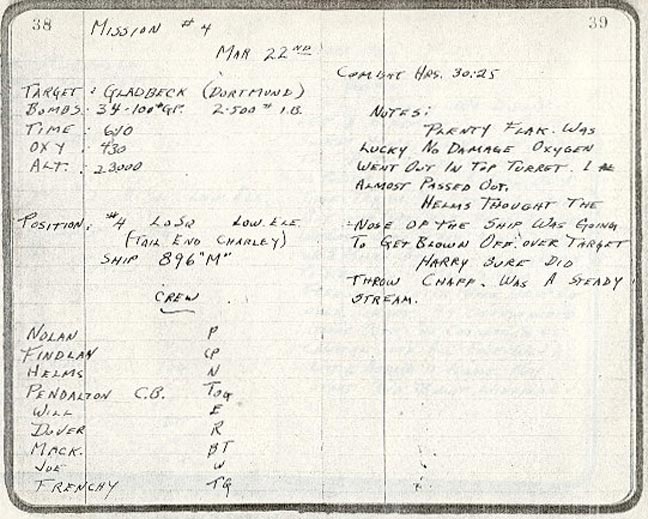 38
MISSION #4
MAR 22ND
TARGET: GLADBECK (DORTMUND)
BOMBS: 34-100# GP. 2-500# I.B.
TIME: 610
OXY: 430
ALT.: 23000
POSITION: #4 LO SQ LOW. ELE.
(TAIL END CHARLEY)
SHIP 896 "M"
CREW
NOLAN P
FINDLAN CP
HELMS N
PENDALTON C.B. TOG
WILL E
DOVER R
MACK. BT
JOE W
FRENCHY TG
39
COMBAT HRS. 30:25
NOTES:
PLENTY FLAK. WAS
LUCKY NO DAMAGE OXYGEN
WENT OUT IN TOP TURRET. I
ALMOST PASSED OUT.
HELMS THOUGHT THE
NOSE OF THE SHIP WAS GOING
TO GET BLOWN OFF. OVER TARGET
HARRY SURE DID
THROW CHAFF. WAS A STEADY
STREAM.